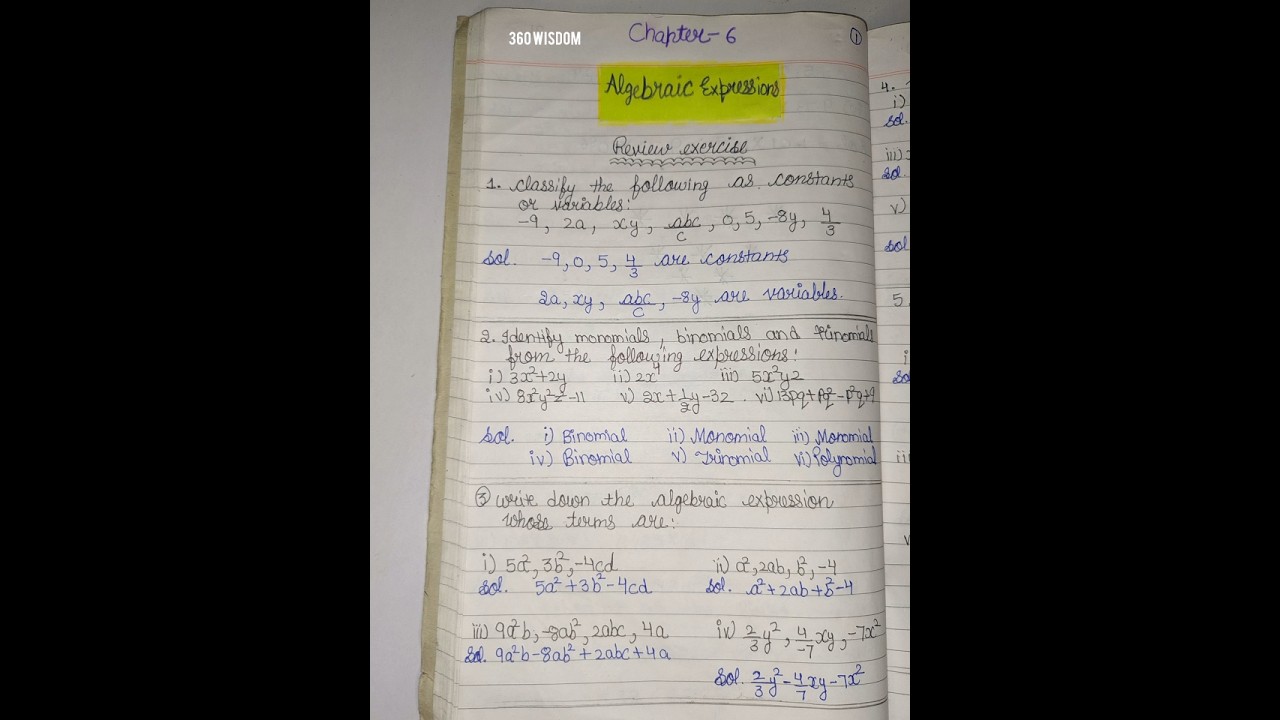 360 WISDOM
Chapter-6
①
Algebraic Expressions
Review exercise
1. classify the following as constants
or variables:
-9, 2a, xy, abc/c, 0, 5, -8y, 4/3
Sol. -9, 0, 5, 4/3 are constants
2a, xy, abc/c, -8y are variables.
2. Identify monomials, binomials and trinomials
from the following expressions:
i) 3x²+2y ii) 2x⁴ iii) 5x²yz
iv) 8x²y²z²-11 v) 2x+1/2y-3z vi) 13pq+pq²-p²q+9
Sol. i) Binomial ii) Monomial iii) Monomial
iv) Binomial v) Trinomial vi) Polynomial
③ write down the algebraic expression
whose terms are:
i) 5a², 3b², -4cd ii) a², 2ab, b², -4
Sol. 5a²+3b²-4cd Sol. a²+2ab+b²-4
iii) 9a²b, -8ab², 2abc, 4a iv) 2/3y², 4/-7xy, -7x²
Sol. 9a²b-8ab²+2abc+4a
Sol. 2/3y²-4/7xy-7x²
4.
i)
Sol.
iii)
Sol.
v)
Sol
5